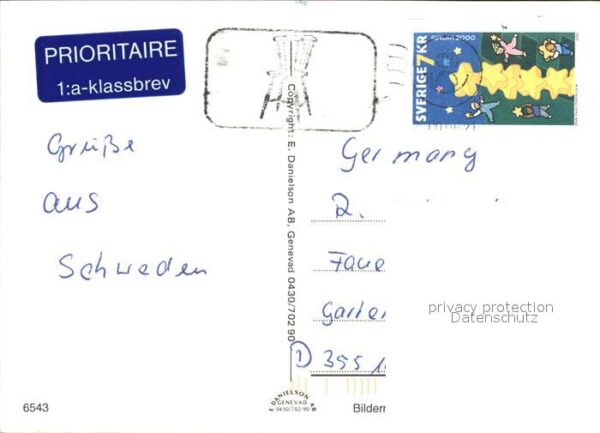 PRIORITAIRE
1:a-klassbrev
EUROPA 2000
SVERIGE 7 KR
Grüße
aus
Schweden
Copyright: E. Danielson AB, Genevad 0430/702 90
Germany
R.
Faue
Garten
D 355
privacy protection
Datenschutz
6543
E DANIELSON AB
GENEVAD
0430/702 90
Bilderr